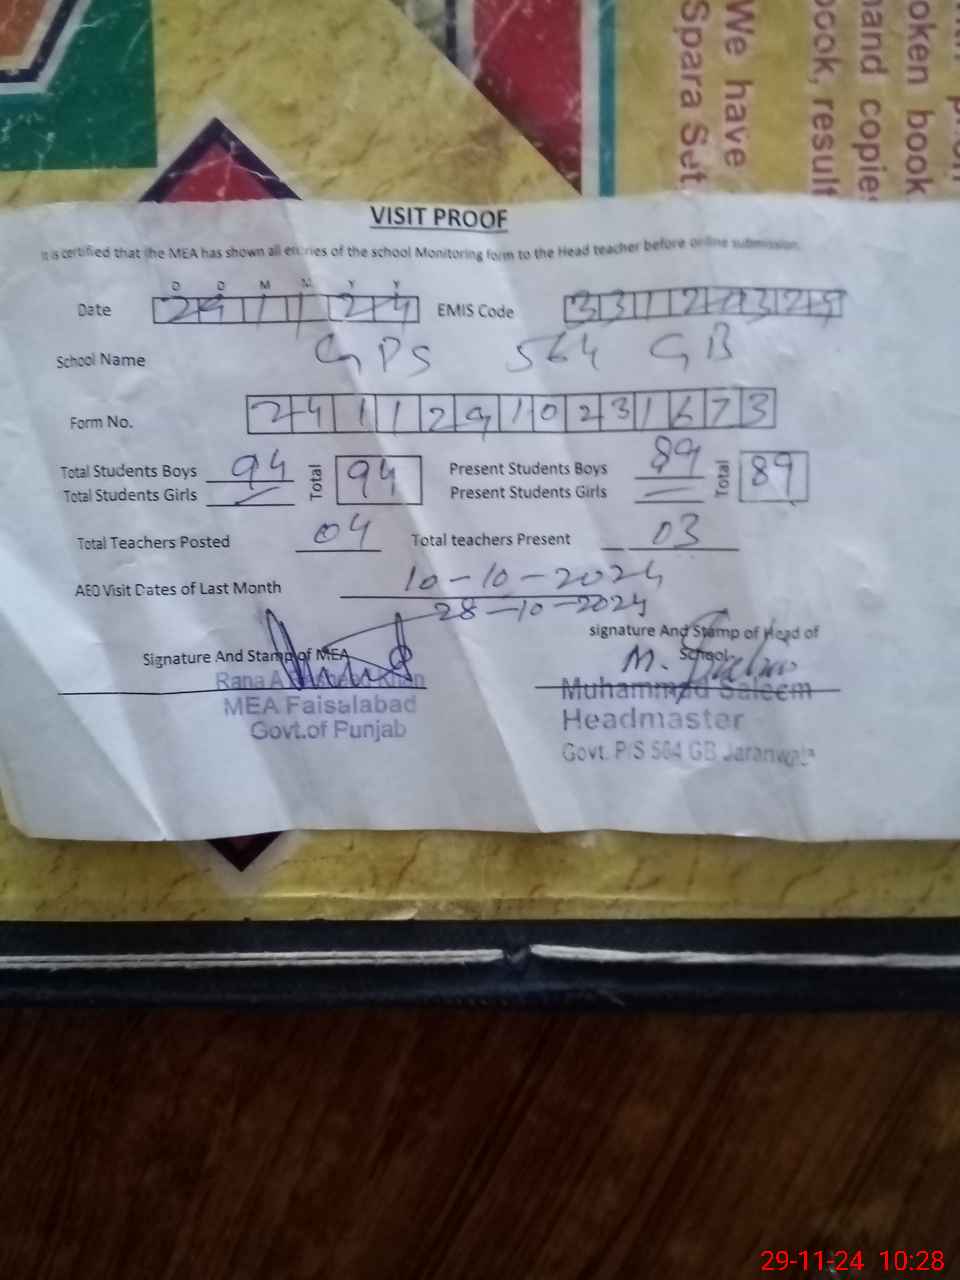 We have
Spara Set.
oken book
hand copies
book, result
VISIT PROOF
It is certified that the MEA has shown all entries of the school Monitoring form to the Head teacher before online submission.
D D M M Y Y
Date 29 11 24 EMIS Code
School Name GPS 564 GB
Form No. 24112910231673
Total Students Boys 94 Total 94 Present Students Boys 89 Total 89
Total Students Girls — Present Students Girls —
Total Teachers Posted 04 Total teachers Present 03
AEO Visit Dates of Last Month 10-10-2024
28-10-2024
Signature And Stamp of MEA
signature And Stamp of Head of School
Rana A Khan
MEA Faisalabad
Govt.of Punjab
M. Saleem
Muhammad Saleem
Headmaster
Govt. P/S 564 GB Jaranwala
29-11-24 10:28